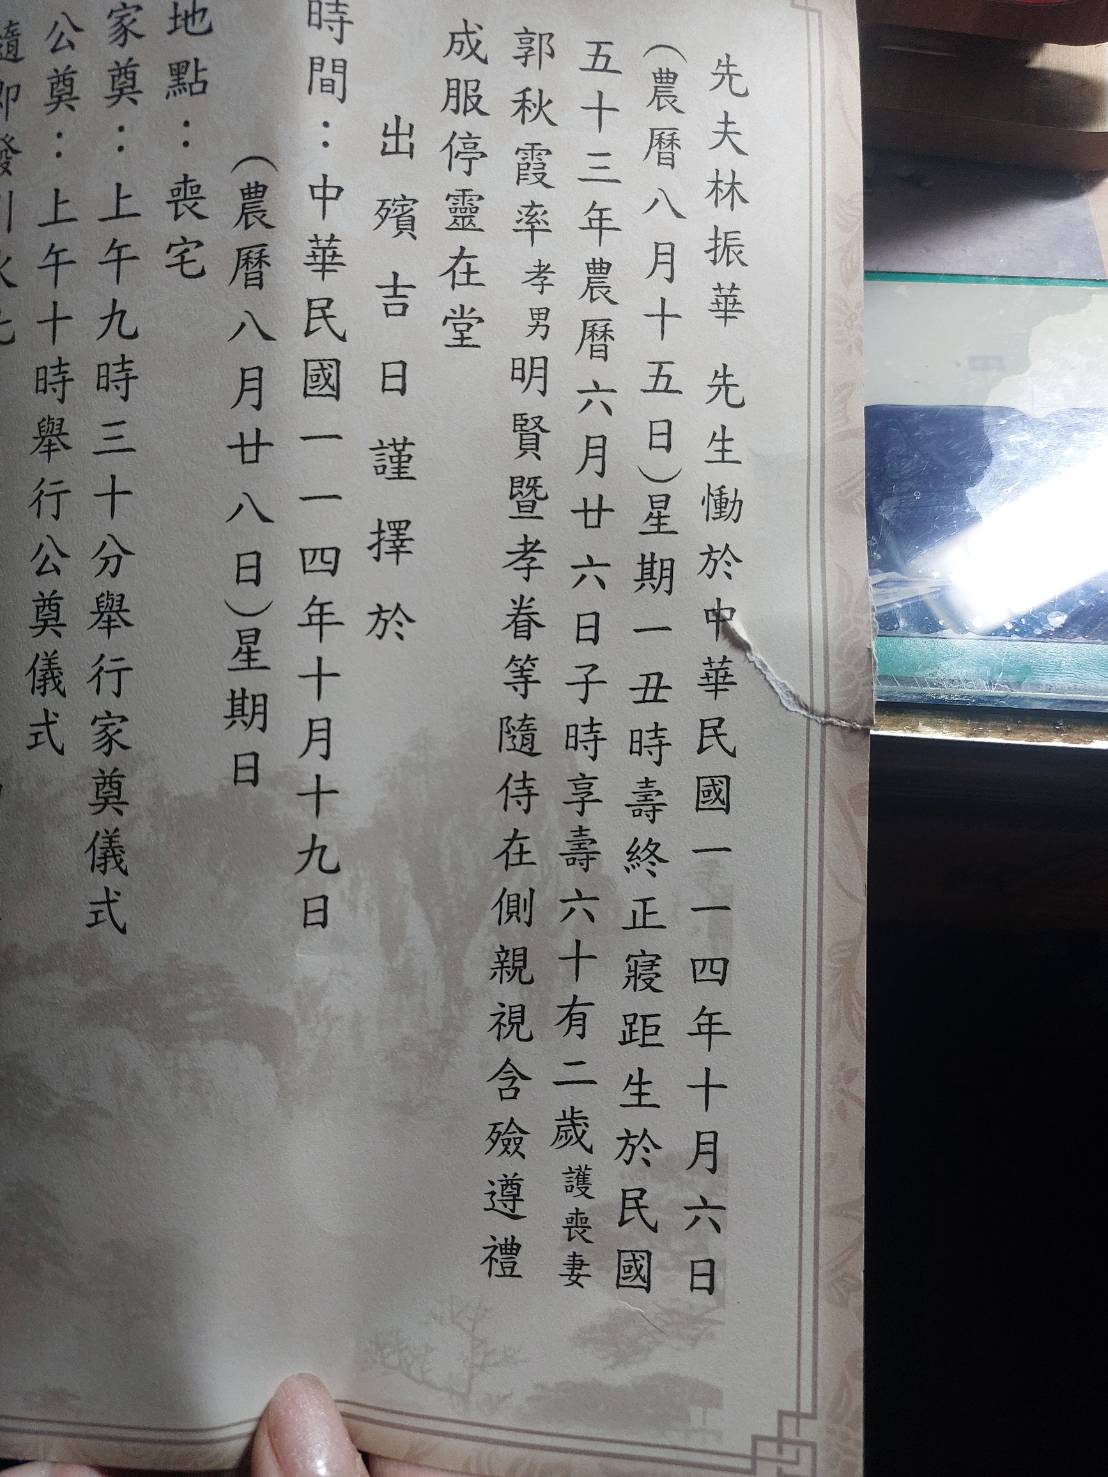 先夫林振華 先生慟於中華民國一一四年十月六日
(農曆八月十五日)星期一丑時壽終正寢距生於民國
五十三年農曆六月廿六日子時享壽六十有二歲護喪妻
郭秋霞率孝男明賢暨孝眷等隨侍在側親視含殮遵禮
成服停靈在堂
出殯吉日謹擇於
時間：中華民國一一四年十月十九日
(農曆八月廿八日)星期日
地點：喪宅
家奠：上午九時三十分舉行家奠儀式
公奠：上午十時舉行公奠儀式
隨即發引火化